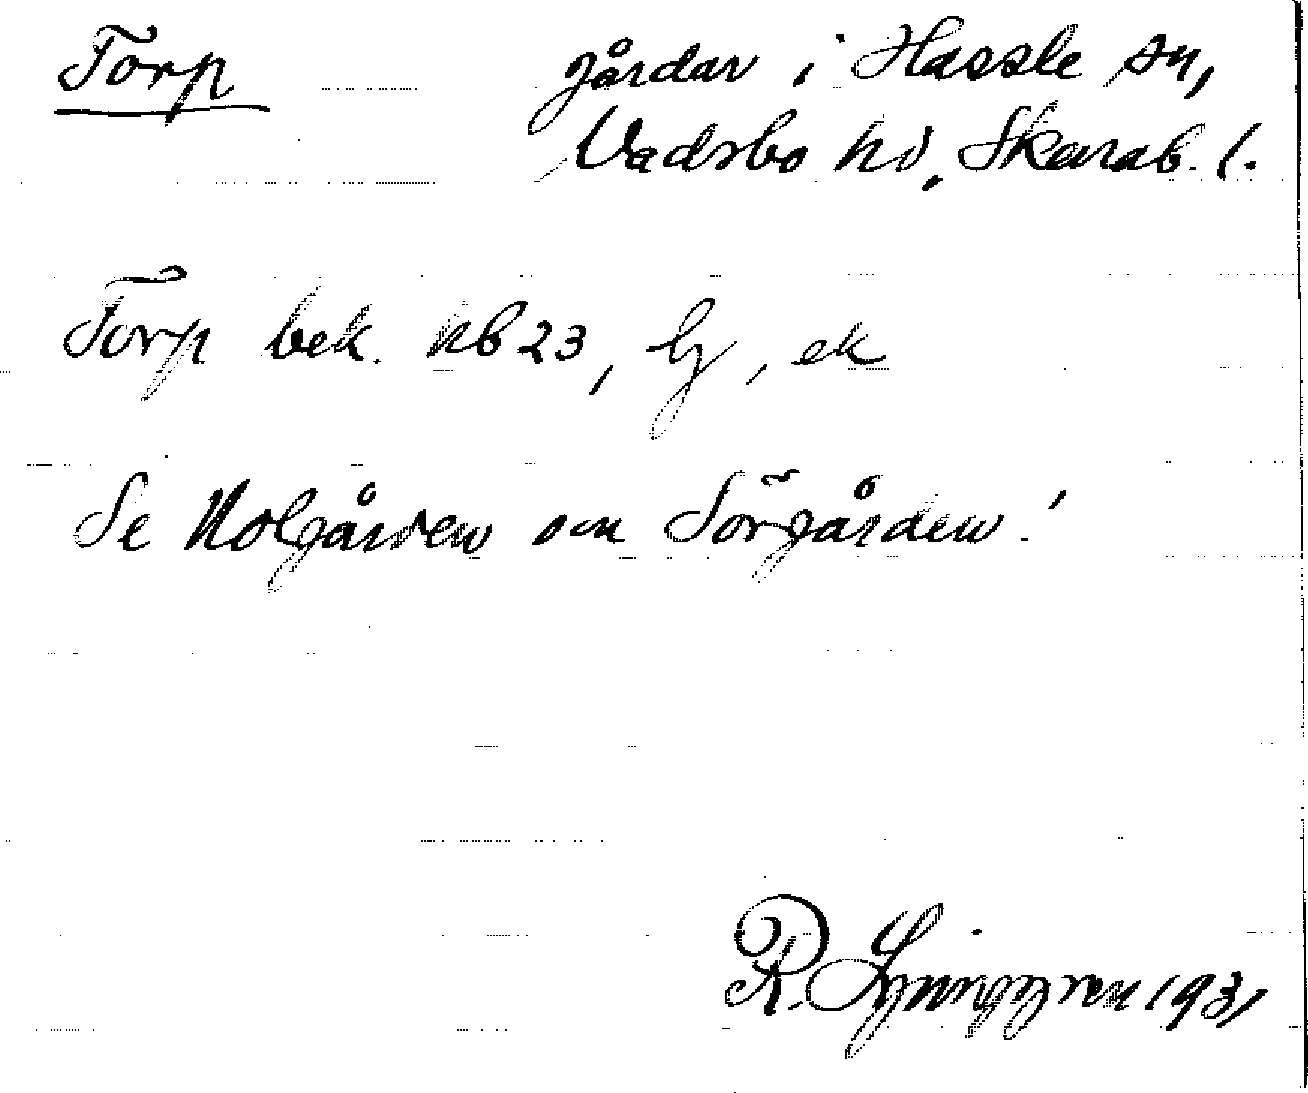 Torp gårdar i Hassle sn,
Vadsbo hd, Skarab. l.
Torp bek. kb 23, bj, ek
Se Nolgården och Sörgården!
R. Ljunggren 1931